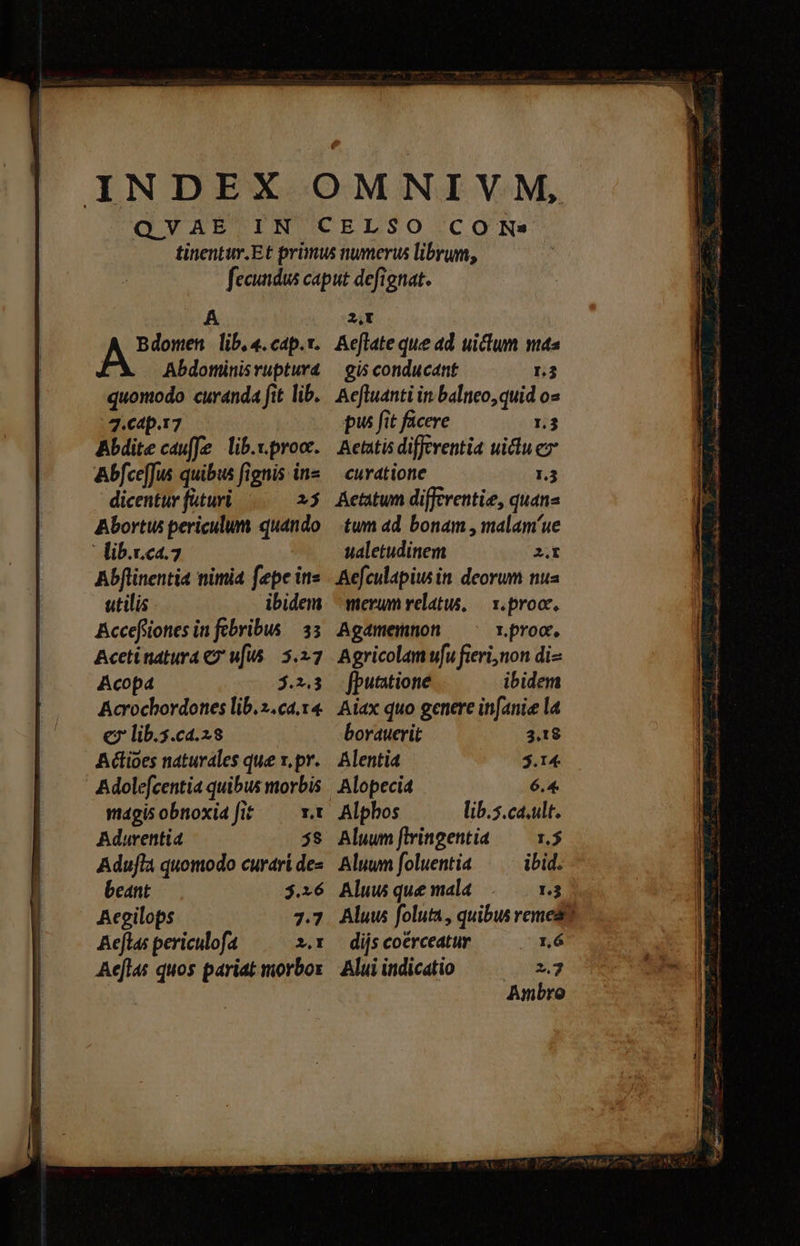 INDEX OMNIVM,
QVAE IN CELSO CON-
tinentur. Et primus numerus librum,
ſecundus caput deſignat.
A
ABdomen lib.4.cap.1.
Abdominis ruptura
quomodo curanda ſit lib.
7.cap.17
Abdite cauſſe lib.1.prooe.
Abſceſſus quibus ſignis in-
dicentur futuri 25
Abortus periculum quando
lib.1.ca.7
Abſtinentia nimia ſepe in-
utilis ibidem
Acceſsiones in febribus 33
Aceti natura & uſus 5.27
Acopa 3.2.3
Acrochordones lib.2.ca.14
& lib.5.ca.28
Actiões naturales que 1.pr.
Adoleſcentia quibus morbis
magis obnoxia ſit 1.1
Adurentia 58
Aduſta quomodo curari de-
beant 5.26
Aegilops 7.7
Aeſtas periculoſa 2.1
Aeſtas quos pariat morbos
2,1
Aeſtate que ad uictum ma-
gis conducant 1.3
Aeſtuanti in balneo, quid o-
pus ſit facere 1.3
Aetatis differentia uictu &
curatione 1.3
Aetatum differentie, quan-
tum ad bonam, malam´ue
ualetudinem 2.1
Aeſculapius in deorum nu-
merum relatus, 1.prooe.
Agamemnon 1.prooe.
Agricolam uſu fieri, non di-
ſputatione ibidem
Aiax quo genere inſanie la
borauerit 3.18
Alentia 5.14
Alopecia 6.4
Alphos lib.5.ca.ult.
Aluum ſtringentia 1.5
Aluum ſoluentia ibid.
Aluus que mala 1.3
Aluus ſoluta, quibus reme-
dijs coërceatur 1,6
Alui indicatio 2.7
Ambro